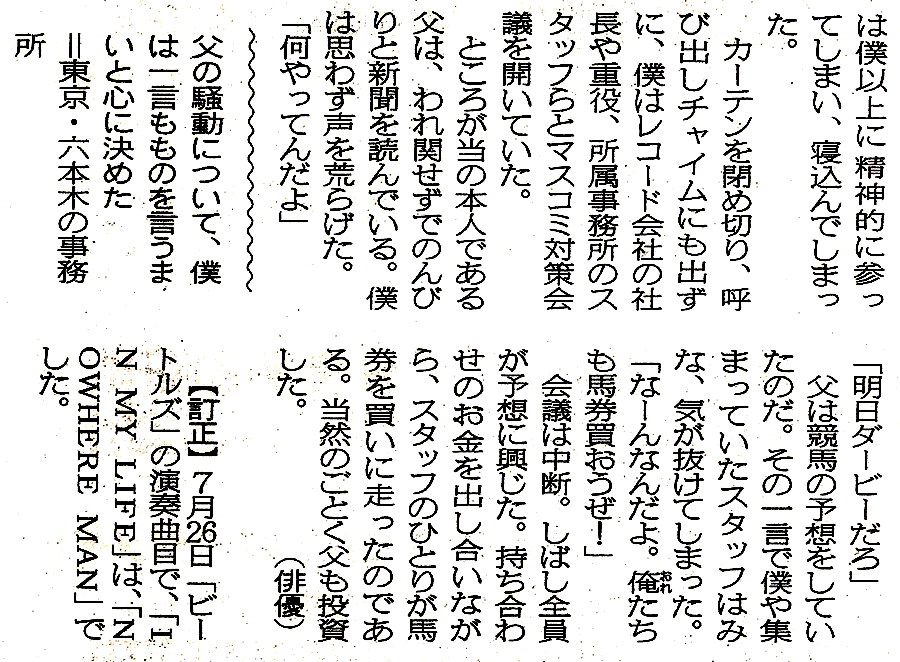 は僕以上に精神的に参っ
てしまい、寝込んでしまっ
た。
カーテンを閉め切り、呼
び出しチャイムにも出ず
に、僕はレコード会社の社
長や重役、所属事務所のス
タッフらとマスコミ対策会
議を開いていた。
ところが当の本人である
父は、われ関せずでのんび
りと新聞を読んでいる。僕
は思わず声を荒らげた。
「何やってんだよ」
父の騒動について、僕
は一言もものを言うま
いと心に決めた
＝東京・六本木の事務
所
「明日ダービーだろ」
父は競馬の予想をしてい
たのだ。その一言で僕や集
まっていたスタッフはみ
な、気が抜けてしまった。
「なーんなんだよ。俺たち
おれ
も馬券買おうぜ！」
会議は中断。しばし全員
が予想に興じた。持ち合わ
せのお金を出し合いなが
ら、スタッフのひとりが馬
券を買いに走ったのであ
る。当然のごとく父も投資
した。
（俳優）
【訂正】７月26日「ビー
トルズ」の演奏曲目で、「I
N MY LIFE」は、「N
OWHERE MAN」で
した。